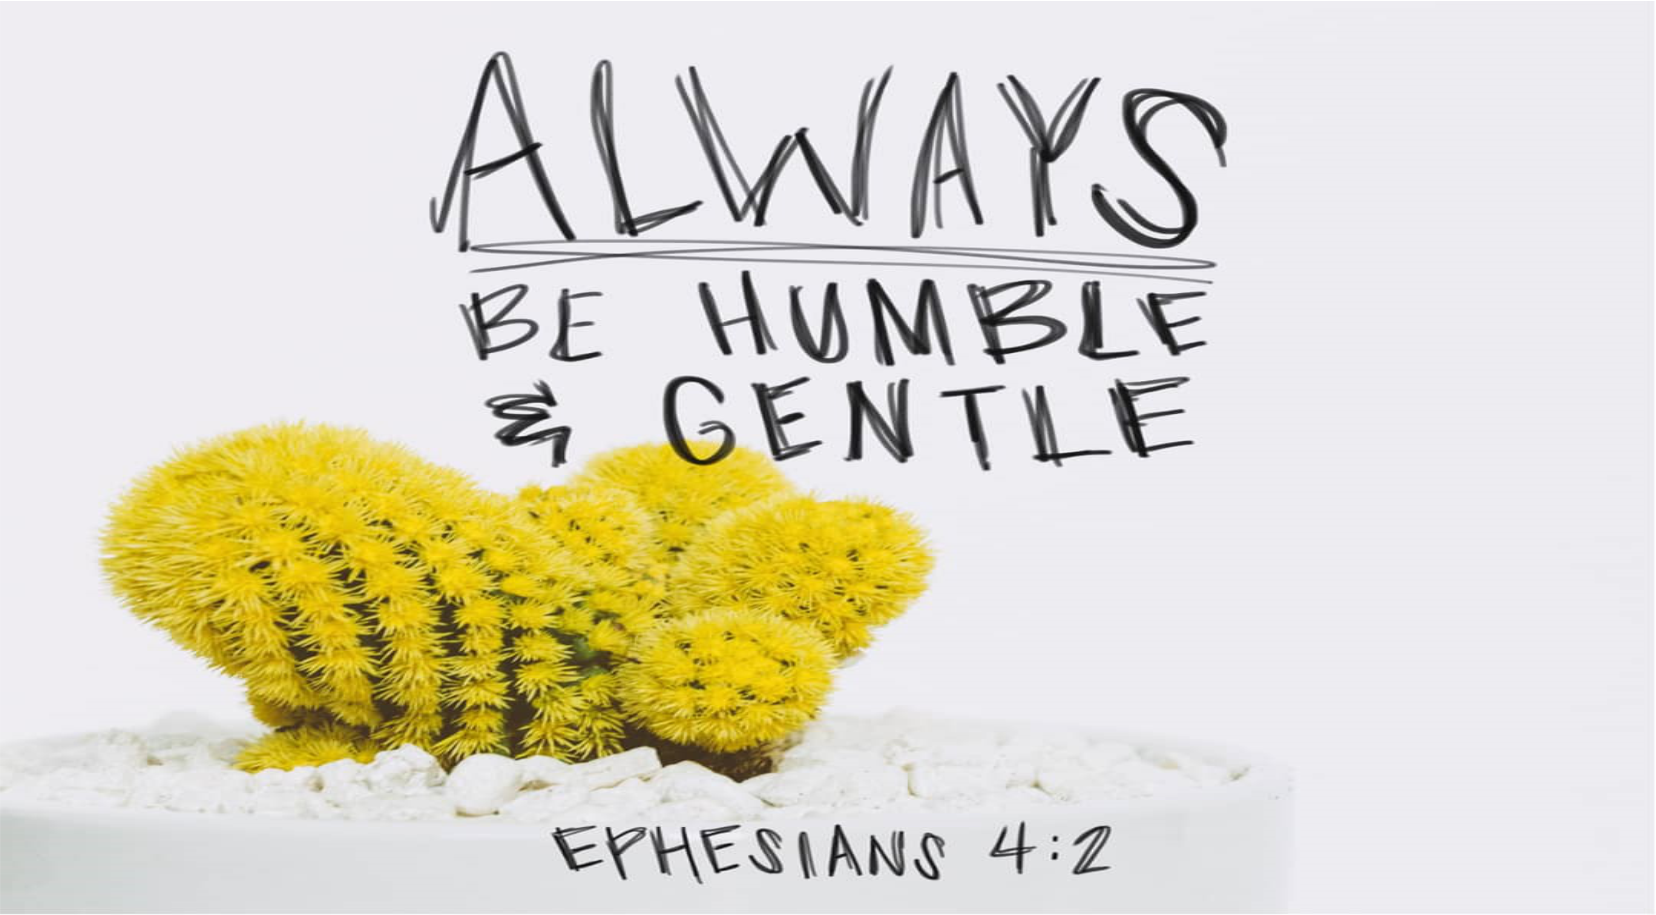 ALWAYS
BE HUMBLE
& GENTLE
EPHESIANS 4:2